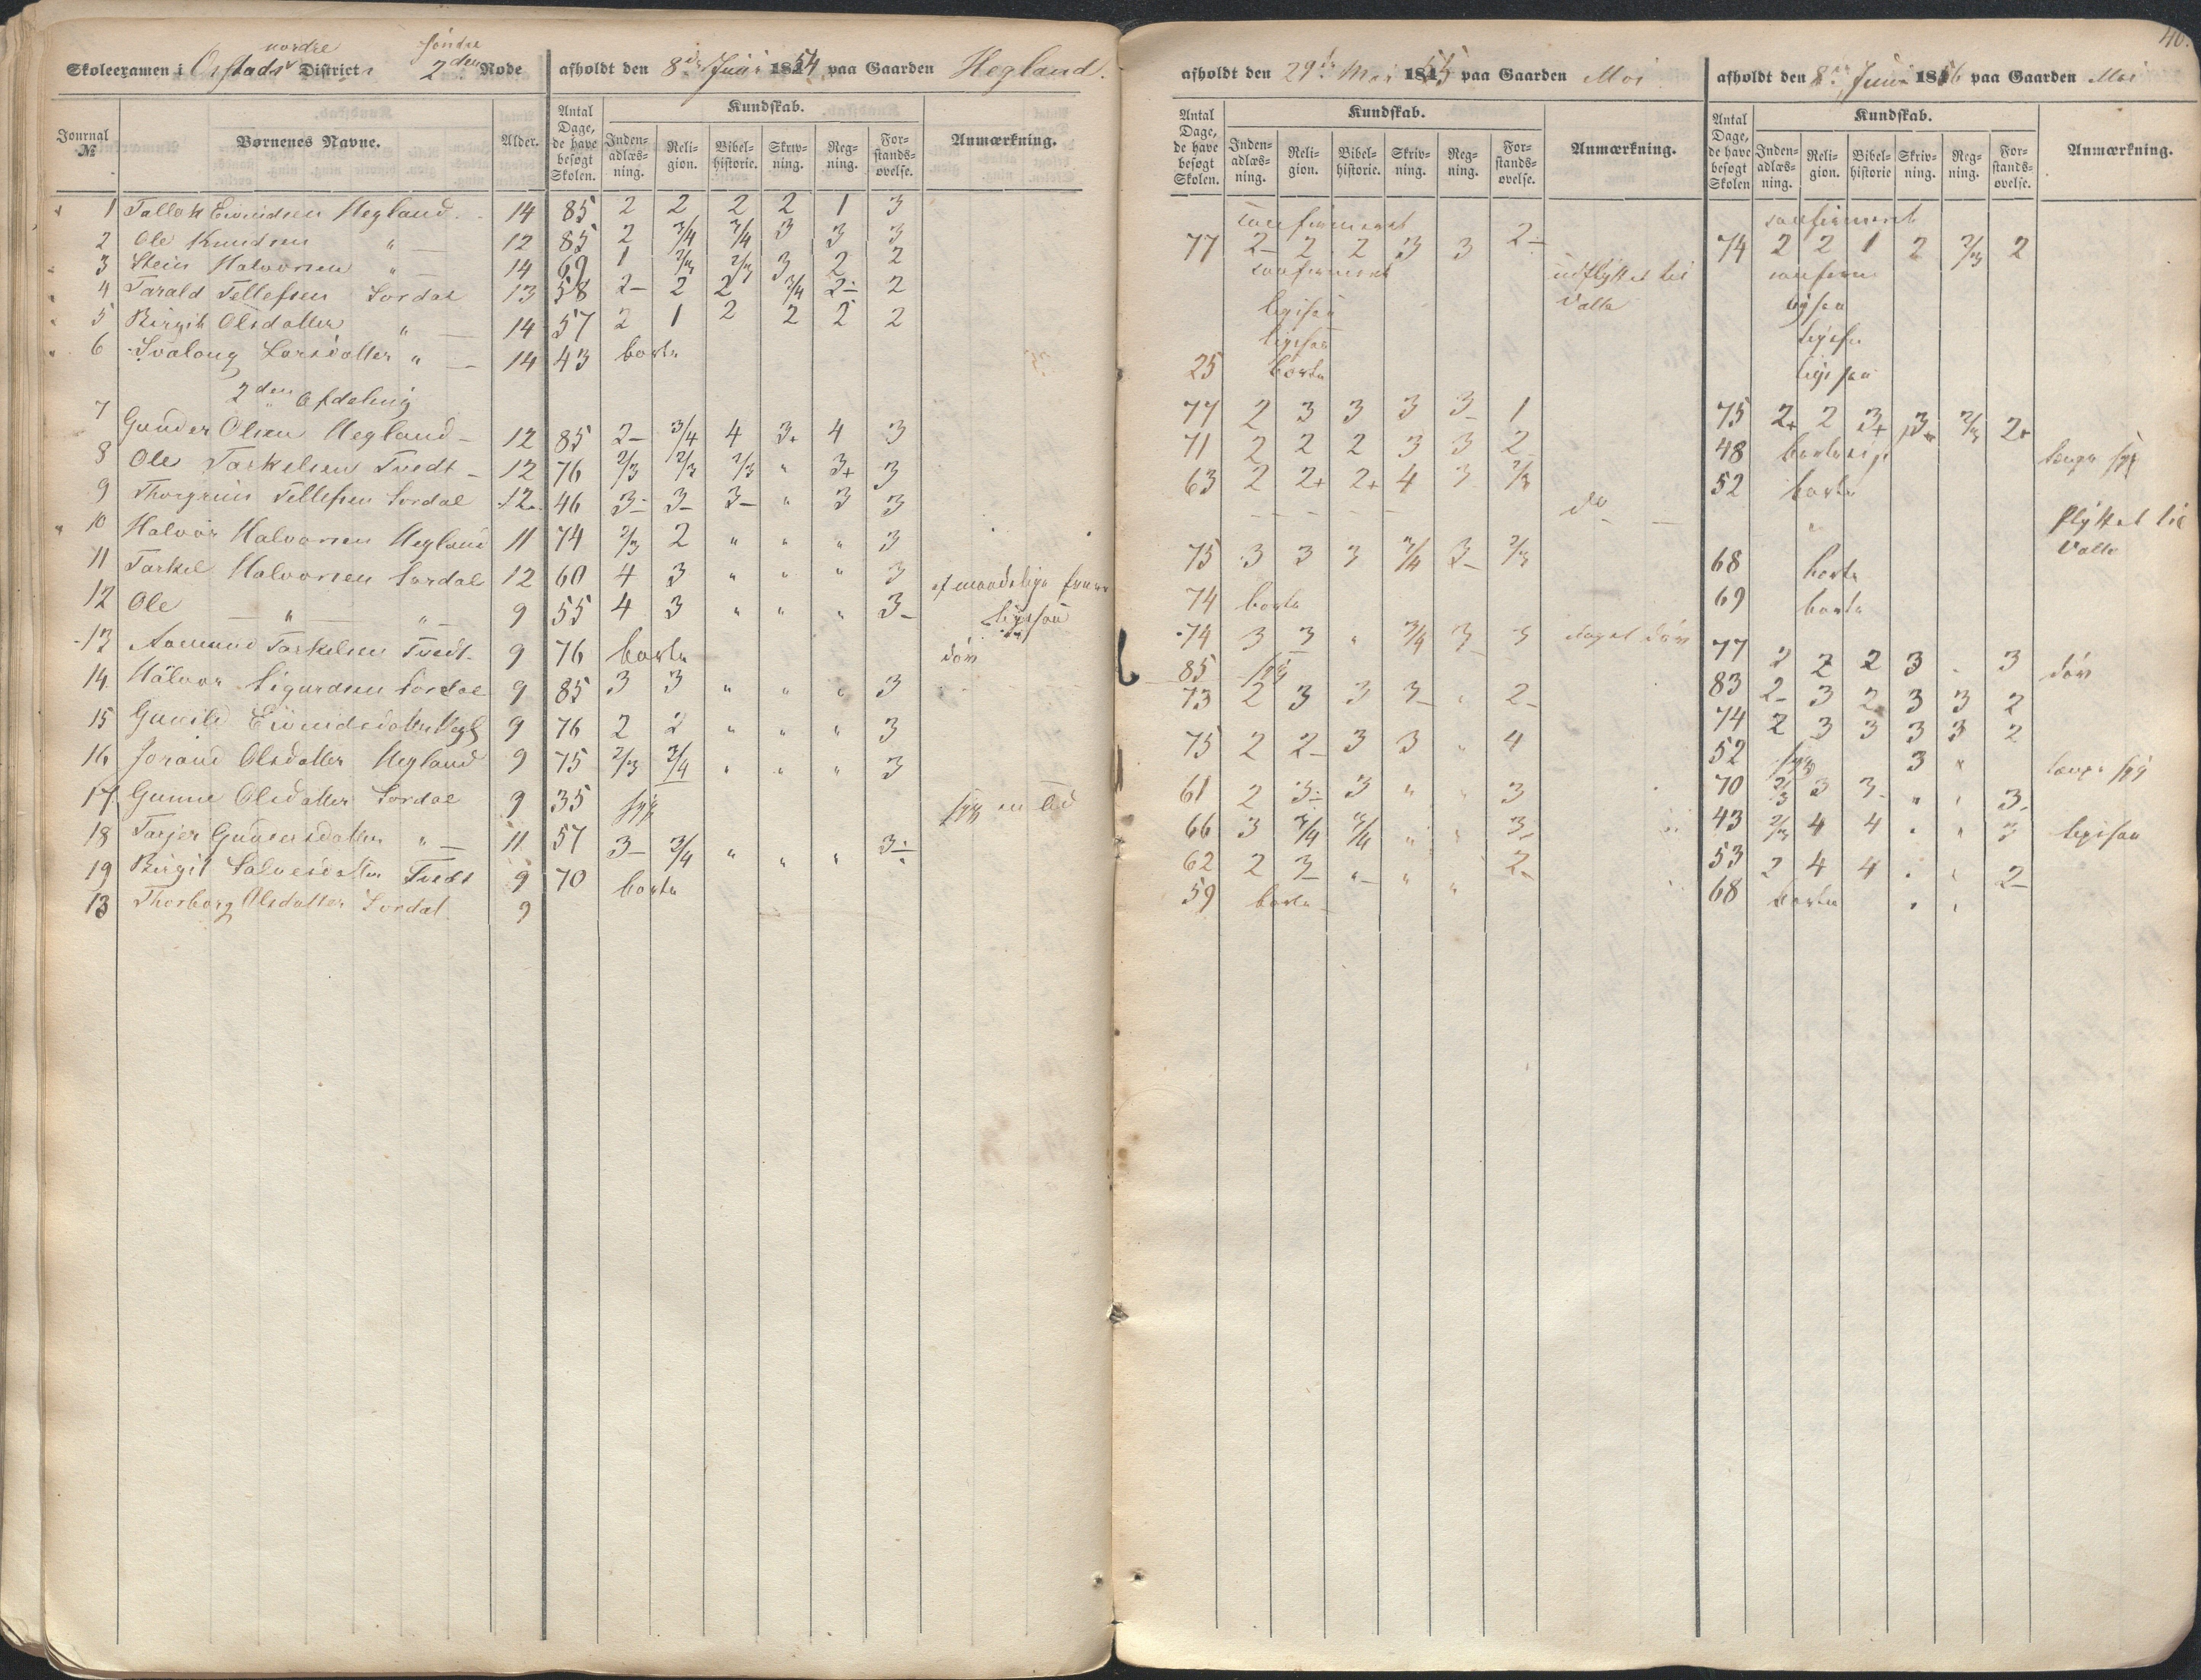 nordre søndre
Skoleexamen i Ørstads District 2den Rode afholdt den 8de Juni 1854 paa Gaarden Hegland.
Journal № Børnenes Navne. Alder. Antal Dage, de have besøgt Skolen. Kundskab. Inden-adlæs-ning. Reli-gion. Bibel-historie. Skriv-ning. Reg-ning. For-stands-øvelse. Anmærkning.
1 Tallak Eivindsen Hegland 14 85 2 2 2 2 1 3
2 Ole Knudsen " 12 85 2 3/4 3/4 3 3 3
3 Stein Halvorsen " 14 69 1 2/3 2/3 3 2 2
4 Tarald Tellefsen Sordal 13 58 2- 2 2 3/4 2- 2
5 Birgit Olsdatter " 14 57 2 1 2 2 2 2
6 Svalaug Larsdatter " 14 43 borte
2den Afdeling
7 Gunder Olsen Hegland 12 85 2- 3/4 4 3+ 4 3
8 Ole Tarkelsen Tvedt 12 76 2/3 2/3 2/3 " 3+ 3
9 Thorgrim Tellefsen Sordal 12 46 3- 3- 3- " 3 3
10 Halvor Halvorsen Hegland 11 74 2/3 2 " " " 3
11 Tarkel Halvorsen Sordal 12 60 4 3 " " " 3
12 Ole " " 9 55 4 3 " " " 3- ligesaa
13 Aamund Tarkelsen Tvedt 9 76 borte døv
14 Halvor Sigurdsen Sordal 9 85 3 3 " " " 3
15 Gunild Eivindsdatter Hegl 9 76 2 2 " " " 3
16 Jorand Olsdatter Hegland 9 75 2/3 3/4 " " " 3
17 Gunne Olsdatter Sordal 9 35 syg syg
18 Tarjer Gundersdatter " 11 57 3- 3/4 " " " 3-
19 Birgit Salvesdatter Tvedt 9 70 borte
13 Thorborg Olsdatter Sordal 9
afholdt den 29de Mai 1855 paa Gaarden Moi
Antal Dage, de have besøgt Skolen. Kundskab. Inden-adlæs-ning. Reli-gion. Bibel-historie. Skriv-ning. Reg-ning. For-stands-øvelse. Anmærkning.
confirmeret
77 2- 2 2 3 3 2-
confirmeret udflyttet til
ligesaa Valle
ligesaa
25 borte
77 2 3 3 3 3- 1
71 2 2 2 3 3 2-
63 2 2+ 2+ 4 3 2/3
do
75 3 3 3 3/4 3- 2/3
74 borte
74 3 3 " 3/4 3- 3 meget døv
85 syg
73 2 3 3 3- " 2-
75 2 2- 3 3 " 4
61 2 3- 3 " " 3
66 3 3/4 3/4 " " 3-
62 2 3- " " " 2-
59 borte
40.
afholdt den 8de Juni 1856 paa Gaarden Moi
Antal Dage, de have besøgt Skolen Kundskab. Inden-adlæs-ning. Reli-gion. Bibel-historie Skriv-ning. Reg-ning. For-stands-øvelse. Anmærkning.
confirmeret
74 2 2 1 2 2/3 2
confirm
ligesaa
ligesaa
ligesaa
75 2+ 2 3+ 3+ 2/3 2+
48 længe syg
52 borte
flyttet til
Valle
68 borte
69 borte
77 2 2 2 3 . 3 døv
83 2- 3 2 3 3 2
74 2 3 3 3 3 2
52 syg 3 " længe syg
70 2/3 3 3- " " 3-
43 2/3 4 4 " " 3 ligesaa
53 2 4 4 " " 2-
68 borte